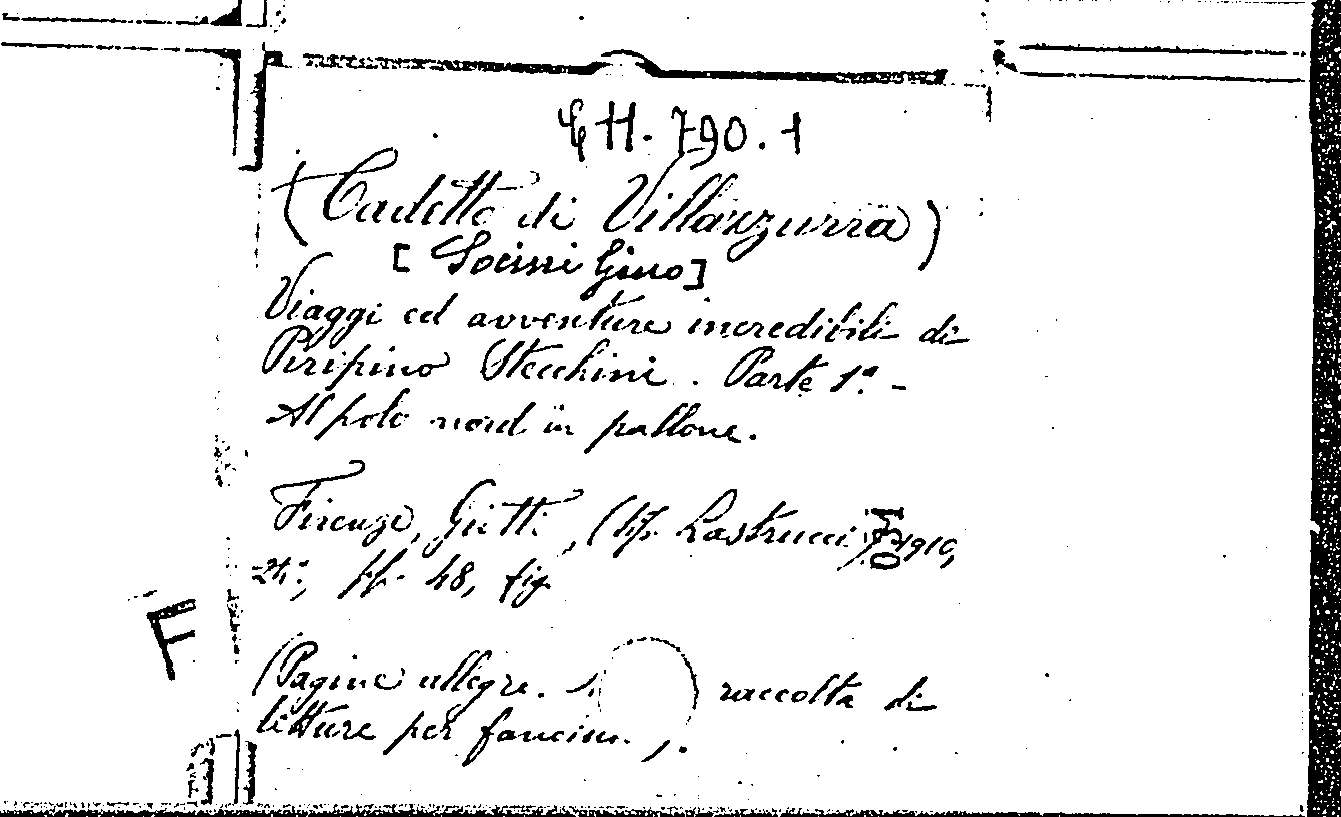 64. 790. 1
(Cadetto di Villazzurra)
[Socini Gino]
Viaggi ed avventure incredibili di
Piripino Stecchini. Parte 1ª. -
Al polo nord in pallone.
Firenze, Giotti, (tip. Lastrucci) 1910,
24°, pp. 48, fig
F
(Pagine allegre. raccolta di
letture per fanciulli).